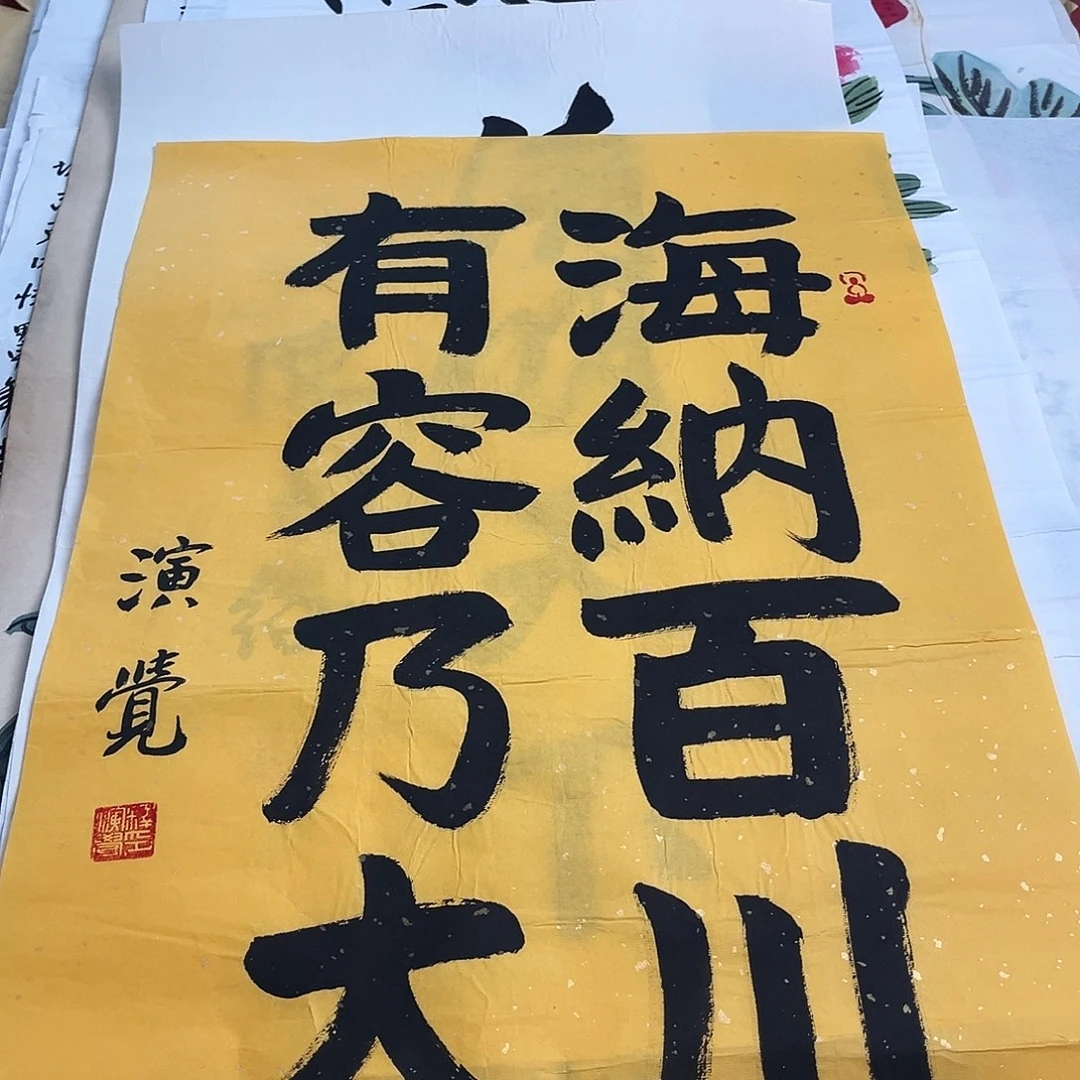 海納百川
有容乃大
演覺